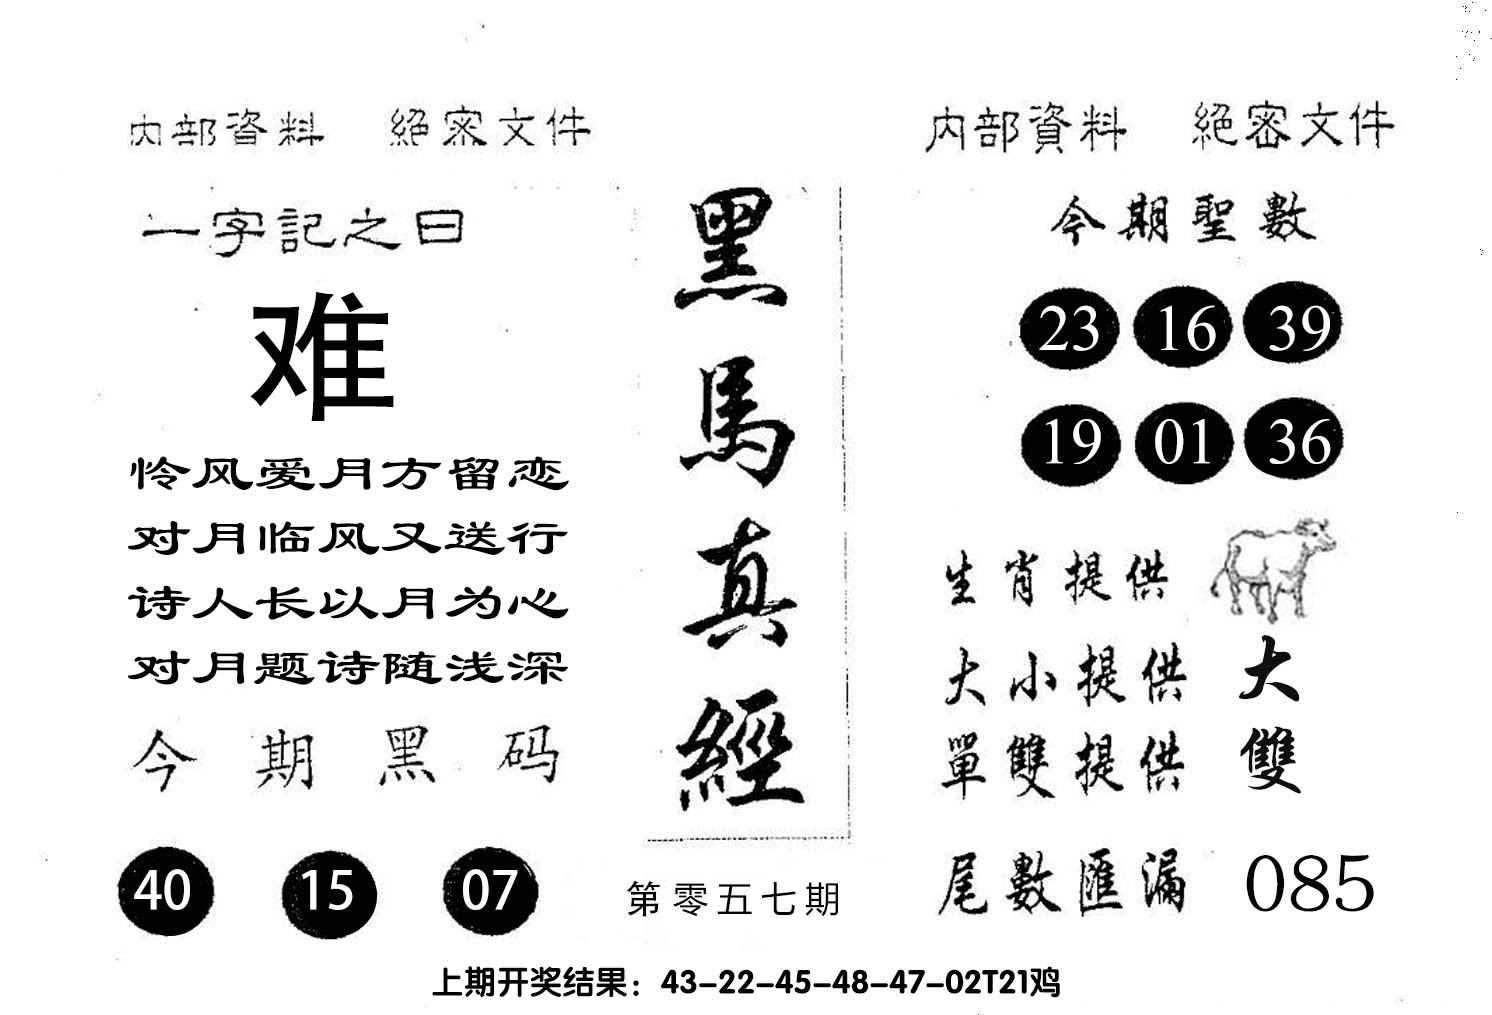 内部資料 絕密文件
一字記之曰
难
怜风爱月方留恋
对月临风又送行
诗人长以月为心
对月题诗随浅深
今期黑码
40 15 07
黑馬真經
第零五七期
内部資料 絕密文件
今期聖數
23 16 39
19 01 36
生肖提供
大小提供 大
單雙提供 雙
尾數匯漏 085
上期开奖结果：43-22-45-48-47-02T21鸡